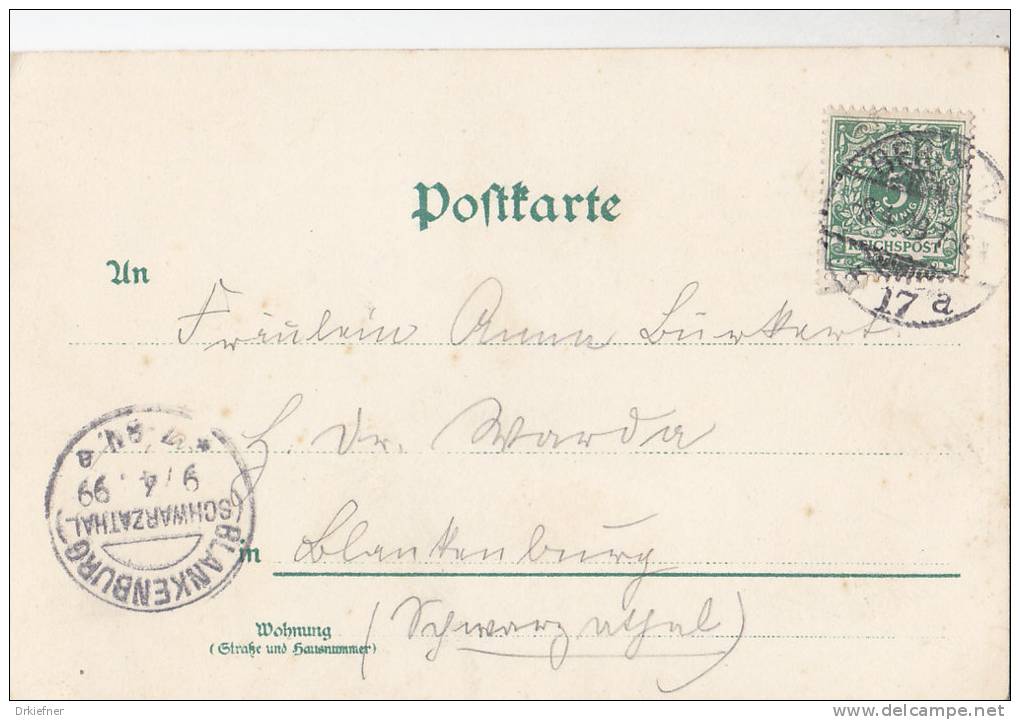 Postkarte
5
REICHSPOST
17 a
An
Fräulein Anna Burkert
H. Dr. Warda
BLANKENBURG
(SCHWARZATHAL)
9/4.99
in Blankenburg
(Schwarzathal)
Wohnung
(Straße und Hausnummer)
Drkiefner
delcampe.net